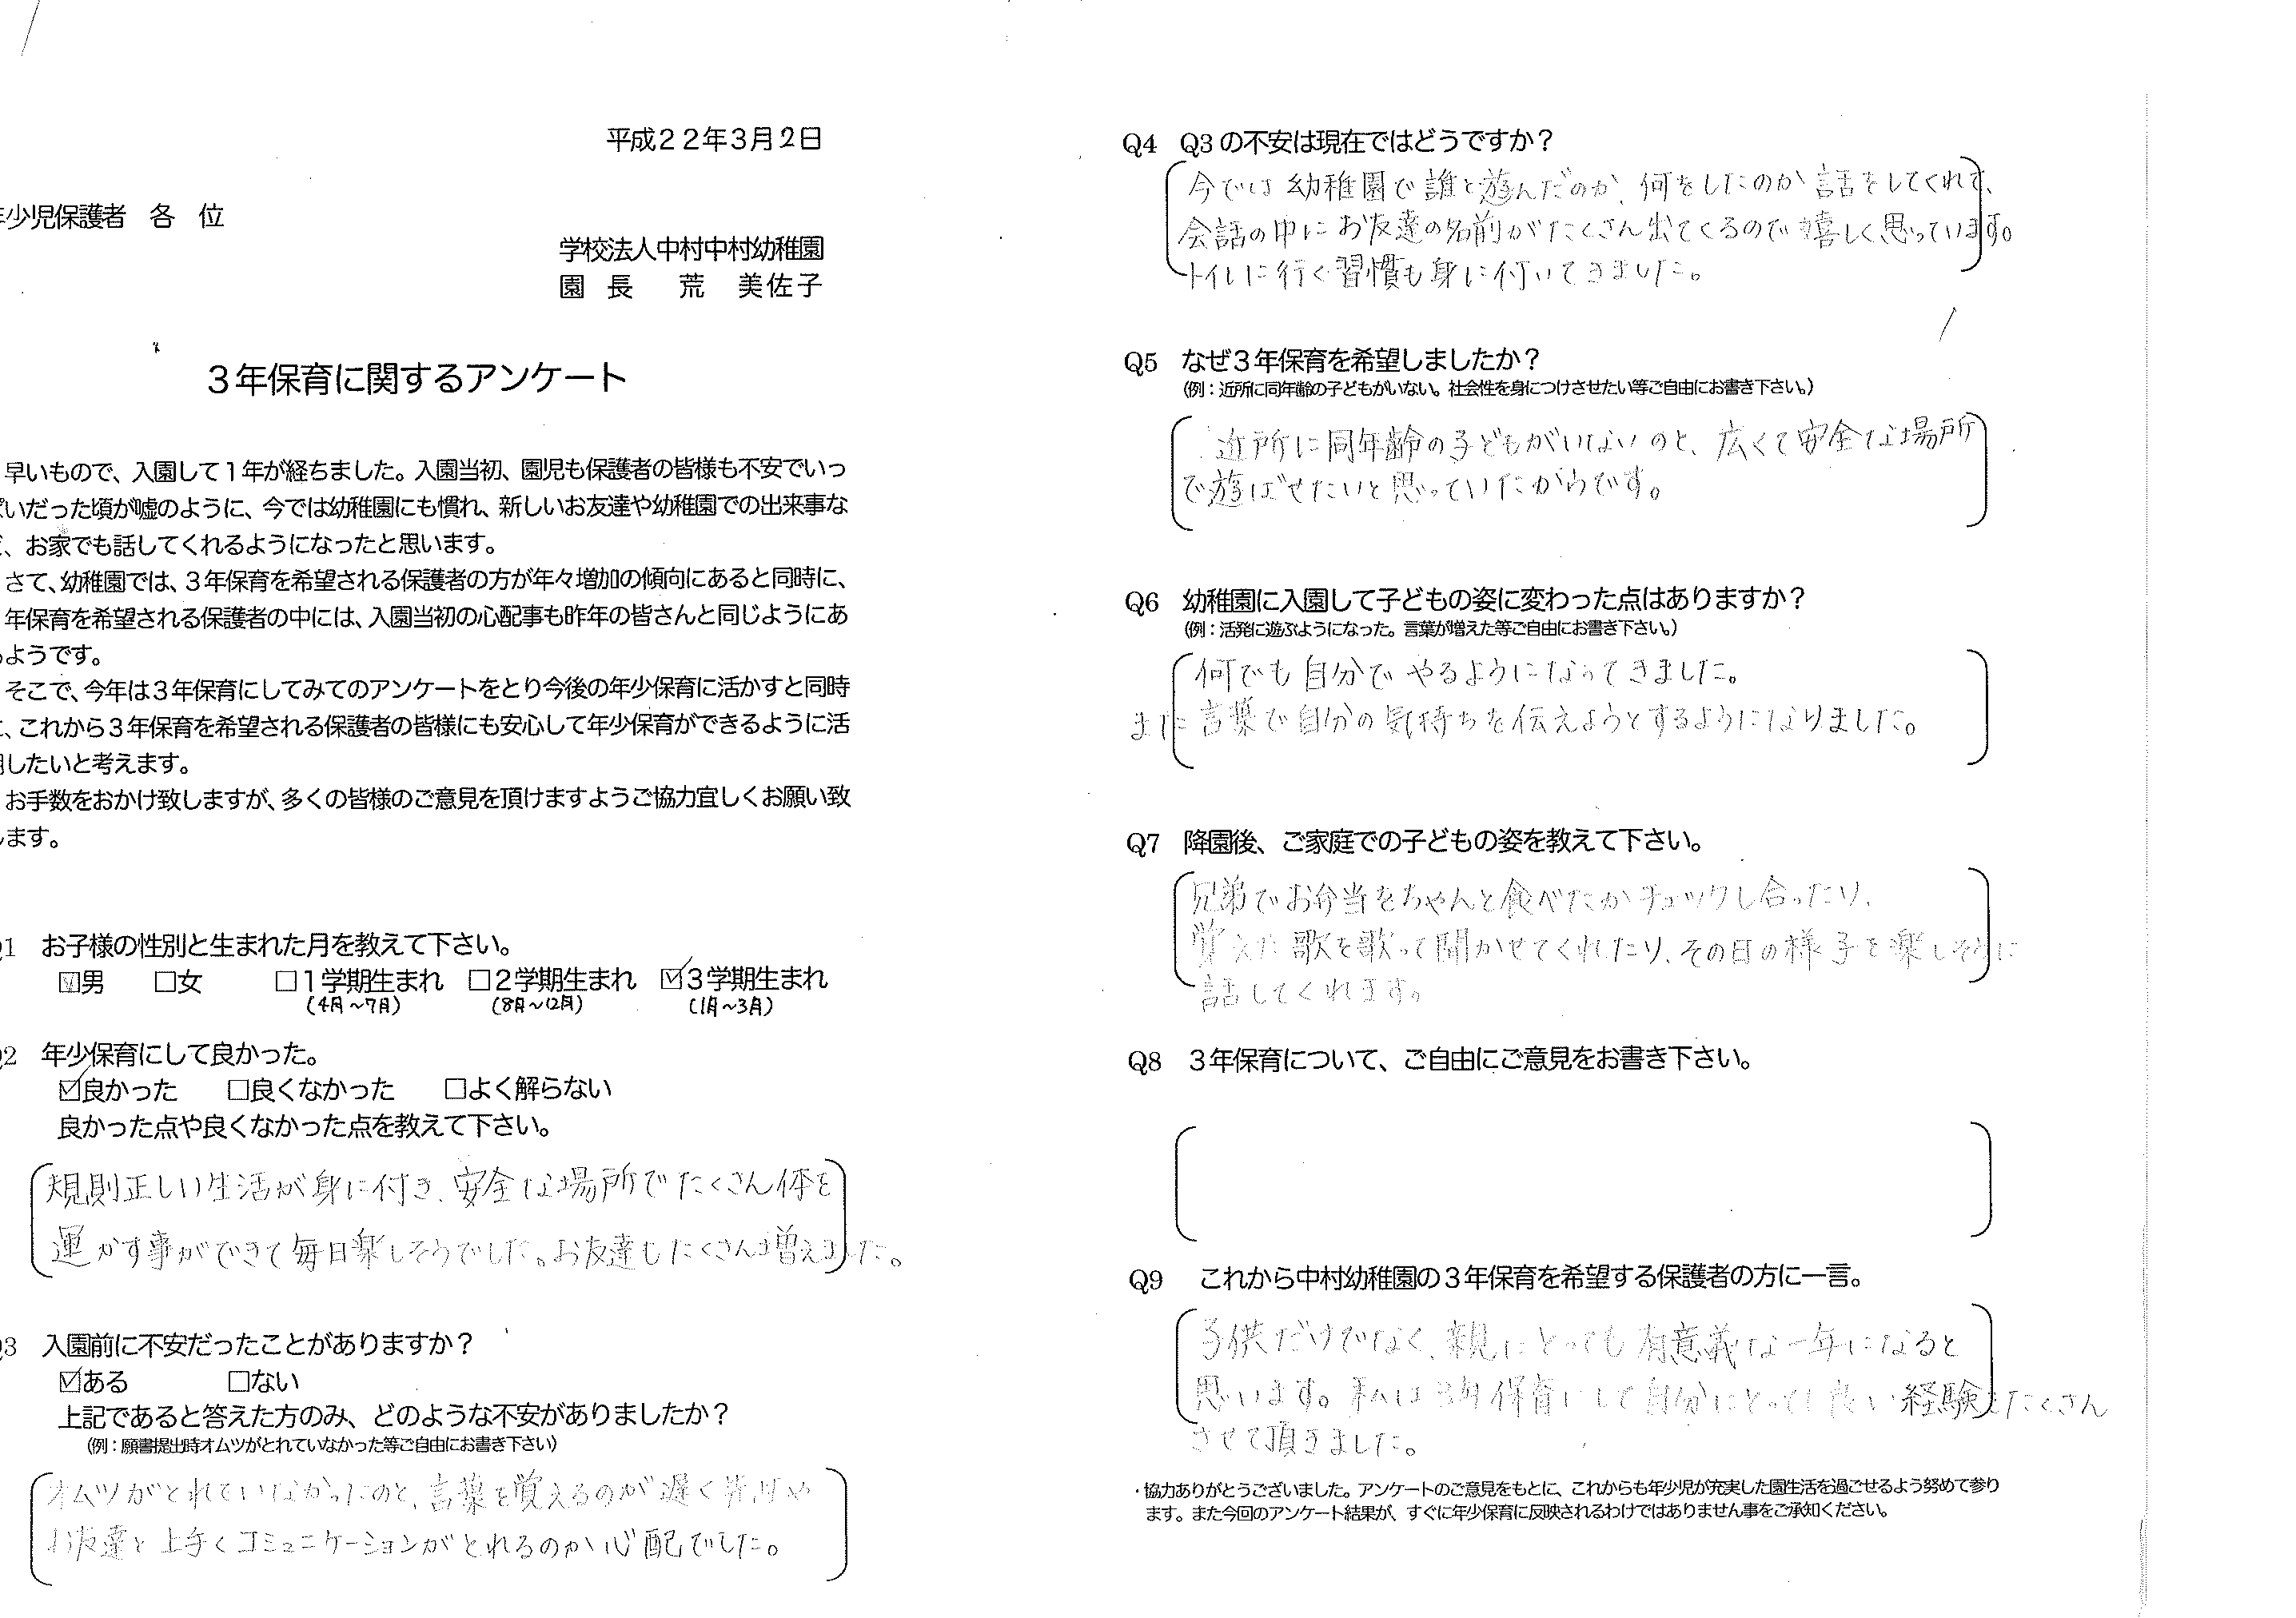 平成22年3月2日
少児保護者 各 位
学校法人中村中村幼稚園
園 長 荒 美佐子
3年保育に関するアンケート
早いもので、入園して1年が経ちました。入園当初、園児も保護者の皆様も不安でいっ
いだった頃が嘘のように、今では幼稚園にも慣れ、新しいお友達や幼稚園での出来事な
、お家でも話してくれるようになったと思います。
さて、幼稚園では、3年保育を希望される保護者の方が年々増加の傾向にあると同時に、
年保育を希望される保護者の中には、入園当初の心配事も昨年の皆さんと同じようにあ
ようです。
そこで、今年は3年保育にしてみてのアンケートをとり今後の年少保育に活かすと同時
、これから3年保育を希望される保護者の皆様にも安心して年少保育ができるように活
したいと考えます。
お手数をおかけ致しますが、多くの皆様のご意見を頂けますようご協力宜しくお願い致
ます。
1 お子様の性別と生まれた月を教えて下さい。
☑男 □女 □1学期生まれ □2学期生まれ ☑3学期生まれ
(4月~7月) (8月~12月) (1月~3月)
2 年少保育にして良かった。
☑良かった □良くなかった □よく解らない
良かった点や良くなかった点を教えて下さい。
規則正しい生活が身に付き、安全な場所でたくさん体を
運かす事ができて毎日楽しそうでした。お友達もたくさん増えました。
3 入園前に不安だったことがありますか?
☑ある □ない
上記であると答えた方のみ、どのような不安がありましたか?
(例:願書提出時オムツがとれていなかった等ご自由にお書き下さい)
オムツがとれていなかったのと、言葉を覚えるのが遅く
お友達と上手くコミュニケーションがとれるのか心配でした。
Q4 Q3の不安は現在ではどうですか?
今では幼稚園で誰と遊んだのか、何をしたのか話をしてくれて、
会話の中にお友達の名前がたくさん出てくるので嬉しく思っています。
トイレに行く習慣も身に付いてきました。
Q5 なぜ3年保育を希望しましたか?
(例:近所に同年齢の子どもがいない。社会性を身につけさせたい等ご自由にお書き下さい。)
近所に同年齢の子どもがいないのと、広くて安全な場所
で遊ばせたいと思っていたからです。
Q6 幼稚園に入園して子どもの姿に変わった点はありますか?
(例:活発に遊ぶようになった。言葉が増えた等ご自由にお書き下さい。)
何でも自分でやるようになってきました。
また言葉で自分の気持ちを伝えようとするようになりました。
Q7 降園後、ご家庭での子どもの姿を教えて下さい。
兄弟でお弁当をちゃんと食べたかチェックし合ったり、
覚えた歌を歌って聞かせてくれたり、その日の様子を楽しそうに
話してくれます。
Q8 3年保育について、ご自由にご意見をお書き下さい。
Q9 これから中村幼稚園の3年保育を希望する保護者の方に一言。
子供だけでなく、親にとっても有意義な一年になると
思います。私は3年保育にして自分にとっても良い経験をたくさん
させて頂きました。
・協力ありがとうございました。アンケートのご意見をもとに、これからも年少児が充実した園生活を過ごせるよう努めて参り
ます。また今回のアンケート結果が、すぐに年少保育に反映されるわけではありません事をご承知ください。